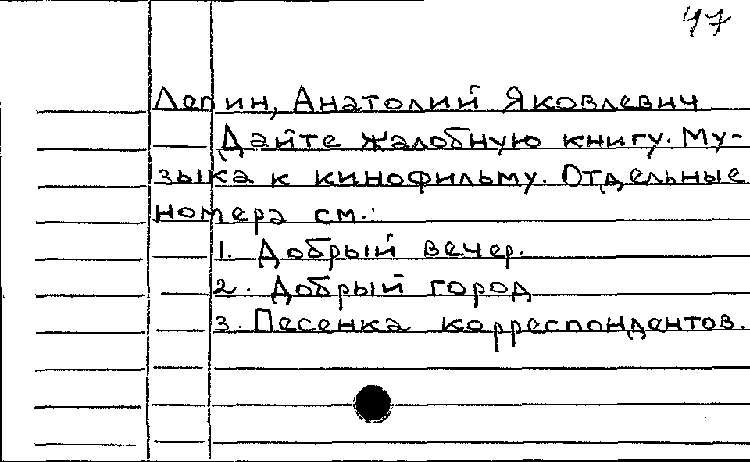 47
Лепин, Анатолий Яковлевич
Дайте жалобную книгу. Му-
зыка к кинофильму. Отдельные
номера см.:
1. Добрый вечер.
2. Добрый город
3. Песенка корреспондентов.